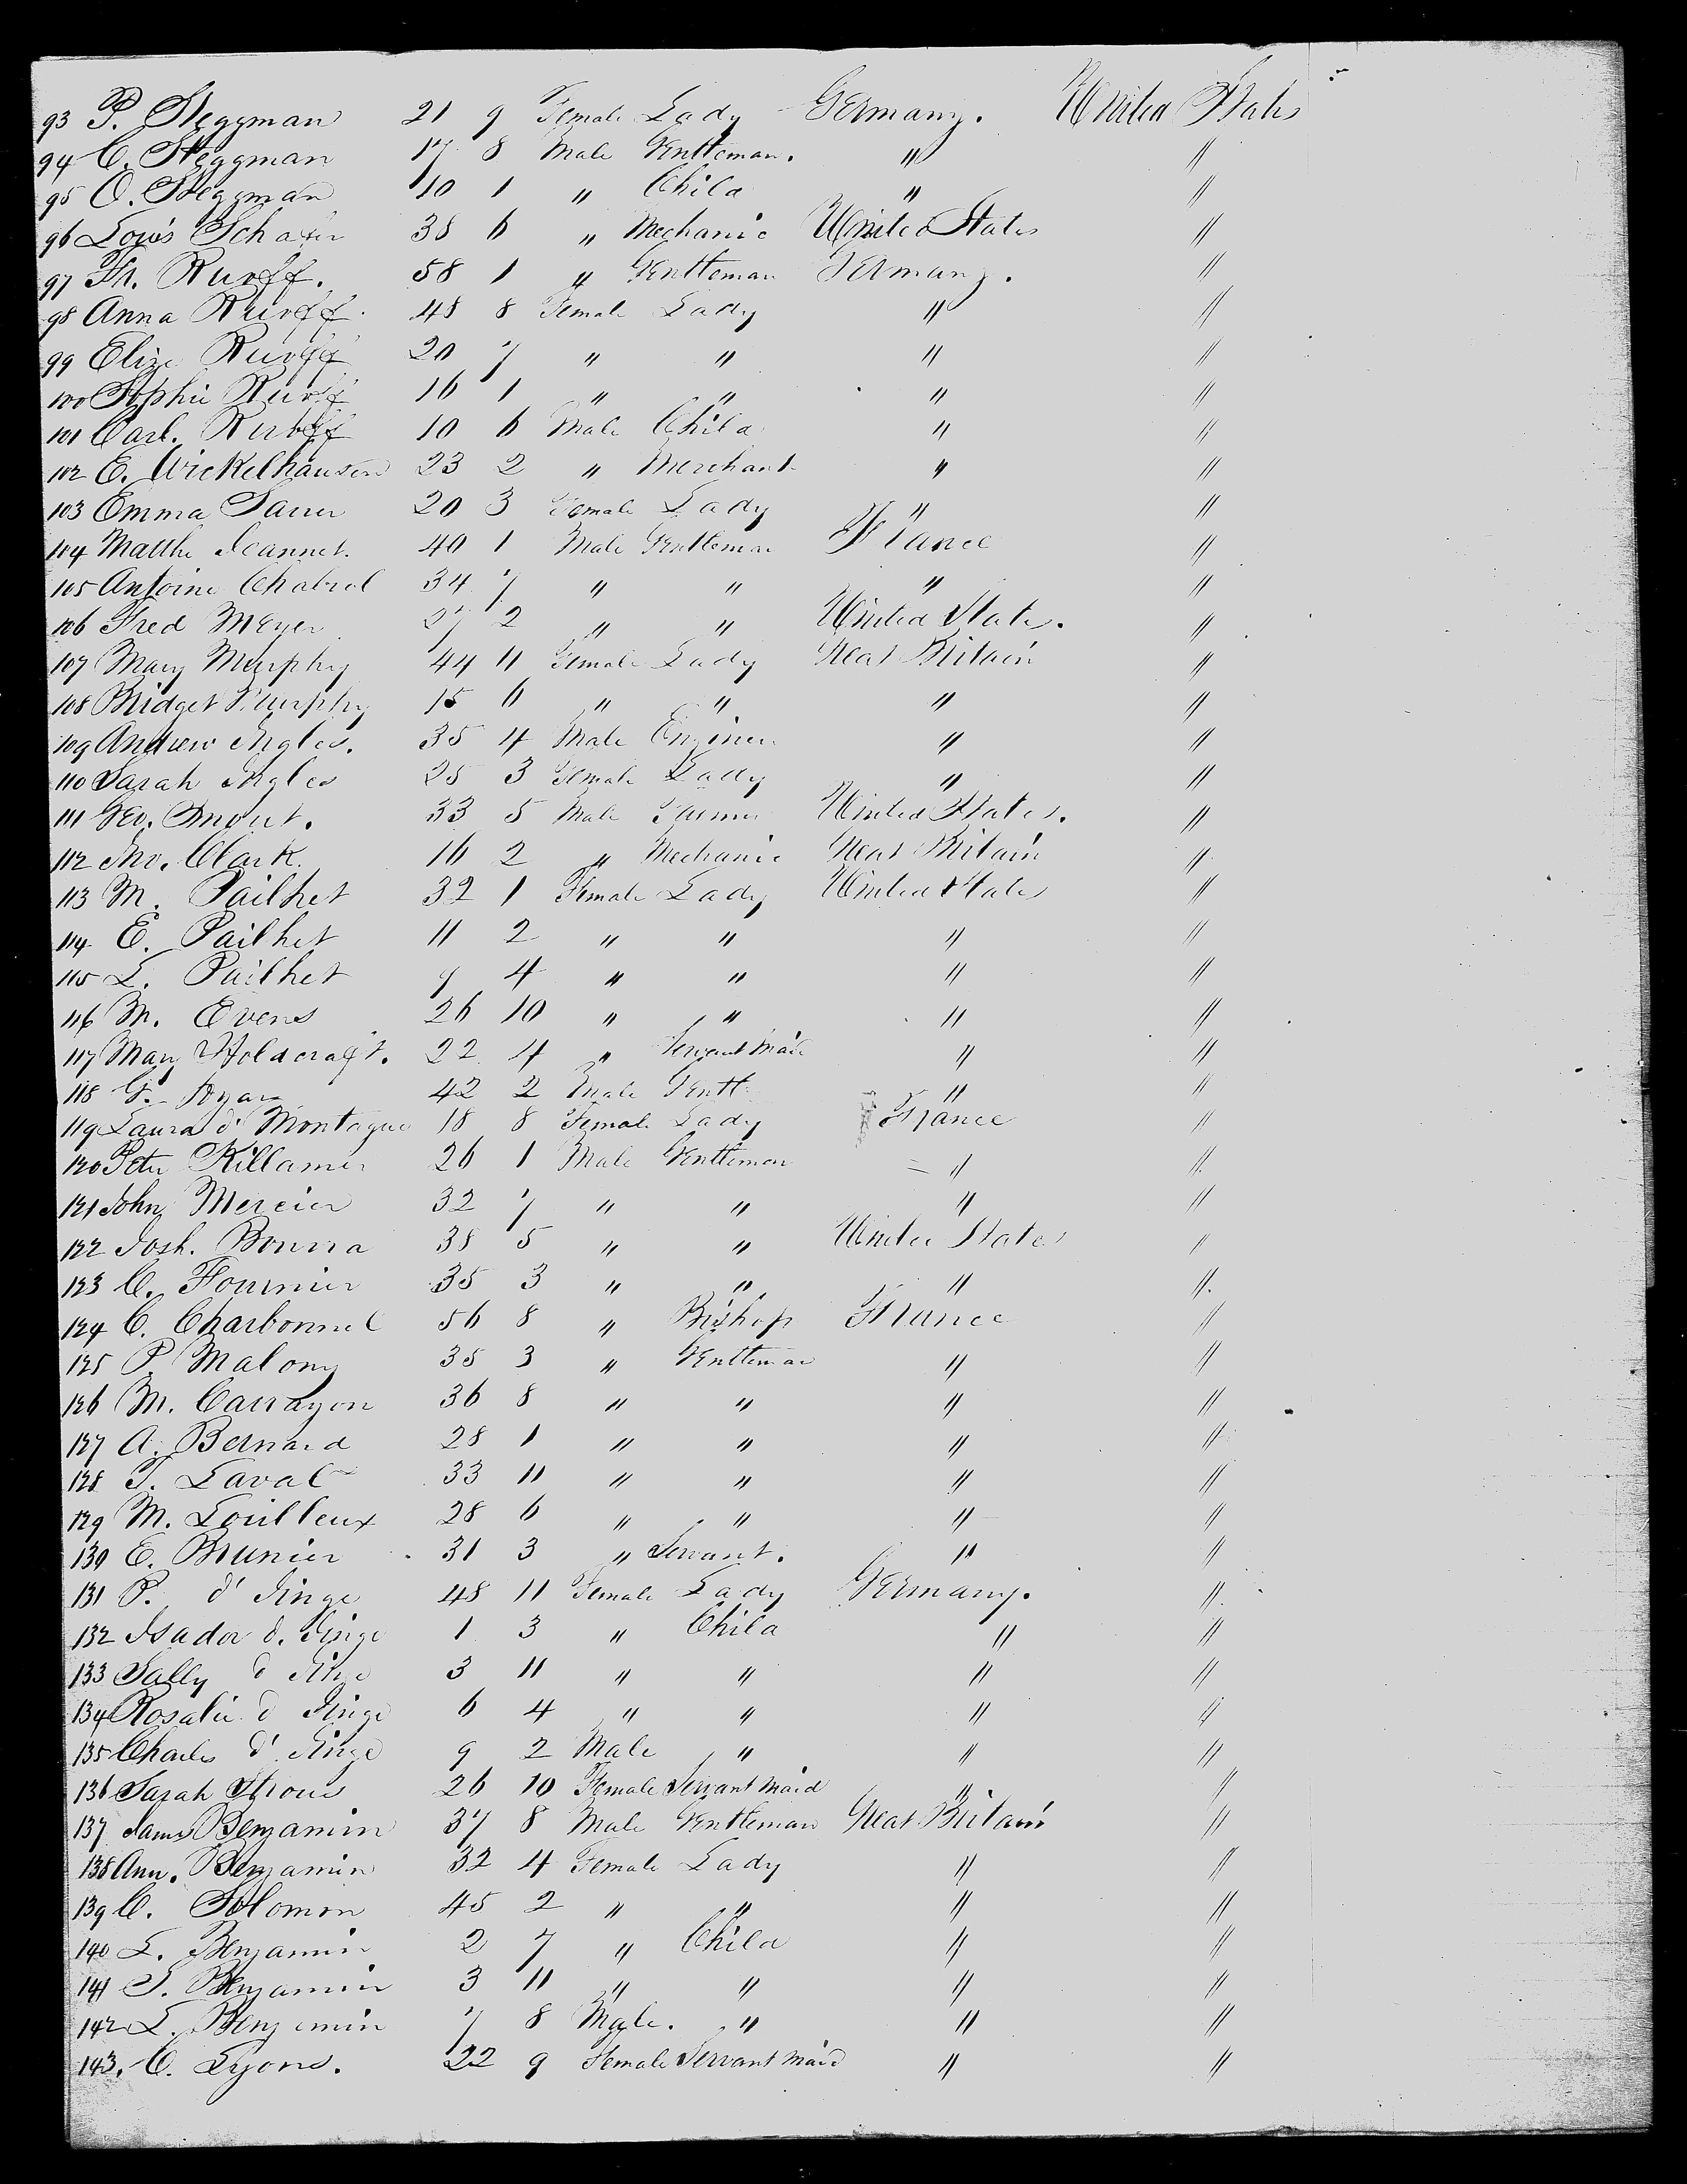 93 P. Steggman 21 9 Female Lady Germany. United States
94 C. Steggman 17 8 Male Gentleman. " "
95 O. Steggman 10 1 " Child " "
96 Louis Schafer 38 6 " Mechanic United States "
97 Fr. Ruroff. 58 1 " Gentleman Germany. "
98 Anna Ruroff. 48 8 Female Lady " "
99 Elize Ruroff 20 7 " " " "
100 Sophie Ruroff 16 1 " " " "
101 Carl. Ruroff 10 6 Male Child " "
102 E. Wickelhausen 23 2 " Merchant " "
103 Emma Sauer 20 3 Female Lady " "
104 Matthe Jeannet. 40 1 Male Gentleman France "
105 Antoine Chabrol 34 7 " " " "
106 Fred Meyer 27 2 " " United States. "
107 Mary Murphy 44 11 Female Lady Great Britain "
108 Bridget Murphy 15 6 " " " "
109 Andrew Ingles. 35 4 Male Engineer " "
110 Sarah Ingles 25 3 Female Lady " "
111 Geo. Smout. 33 5 Male Farmer United States. "
112 Jno. Clark. 16 2 " Mechanic Great Britain "
113 M. Pailhet 32 1 Female Lady United States "
114 E. Pailhet 11 2 " " " "
115 L. Pailhet 9 4 " " " "
116 M. Evens 26 10 " " " "
117 Mary Holdcraft. 22 4 " Servant Maid " "
118 G. 42 2 Male Gentl " "
119 Laura d' Montague 18 8 Female Lady France "
120 Peter Killamer 26 1 Male Gentleman " "
121 John Mercier 32 7 " " " "
122 Josh. Bourra 38 5 " " United States "
123 C. Fournier 35 3 " " " "
124 C. Charbonnel 56 8 " Bishop France "
125 P. Malony 35 3 " Gentleman " "
126 M. Carrayon 36 8 " " " "
127 A. Bernard 28 1 " " " "
128 T. Laval 33 11 " " " "
129 M. Louilleux 28 6 " " " "
130 E. Brunier 31 3 " Servant. " "
131 P. d' Jinge 48 11 Female Lady Germany. "
132 Isador d. Jinge 1 3 " Child " "
133 Sally d Jinge 3 11 " " " "
134 Rosalie d Jinge 6 4 " " " "
135 Charles d' Jinge 9 2 Male " " "
136 Sarah Strous 26 10 Female Servant Maid " "
137 James Benjamin 37 8 Male Gentleman Great Britain "
138 Ann. Benjamin 32 4 Female Lady " "
139 C. Solomon 45 2 " " " "
140 L. Benjamin 2 7 " Child " "
141 S. Benjamin 3 11 " " " "
142 L. Benjamin 7 8 Male. " " "
143. C. Lyons. 22 9 Female Servant Maid " "